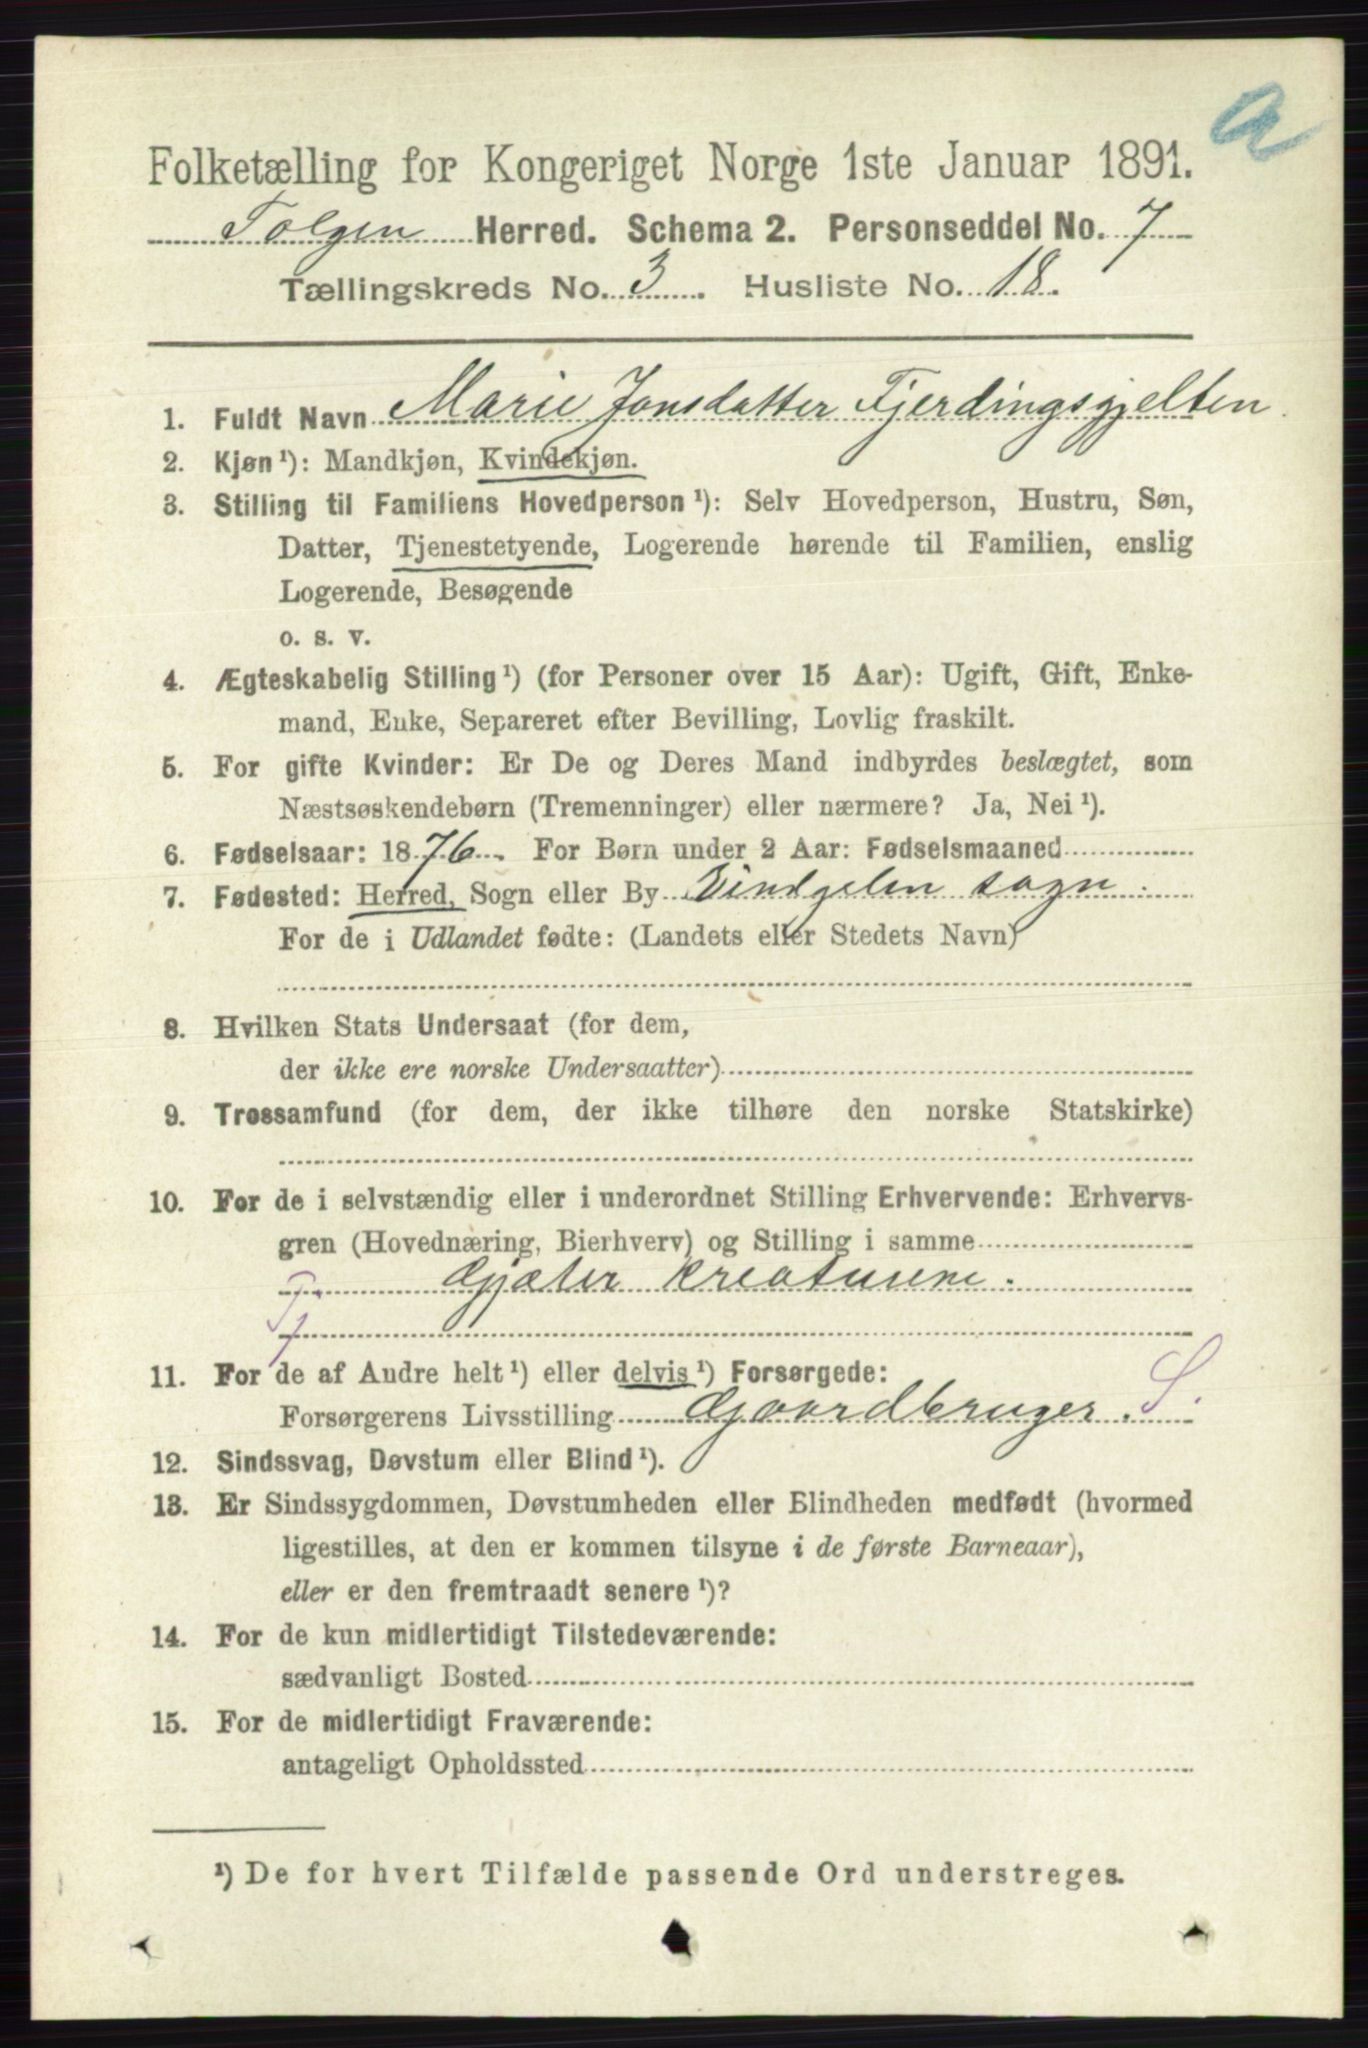 a
Folketælling for Kongeriget Norge 1ste Januar 1891.
Tolgen Herred. Schema 2. Personseddel No. 7
Tællingskreds No. 3. Husliste No. 18.
1. Fuldt Navn Marie Jonsdatter Fjerdingsgjelten.
2. Kjøn ¹): Mandkjøn, Kvindekjøn.
3. Stilling til Familiens Hovedperson ¹): Selv Hovedperson, Hustru, Søn,
Datter, Tjenestetyende, Logerende hørende til Familien, enslig
Logerende, Besøgende
o. s. v.
4. Ægteskabelig Stilling ¹) (for Personer over 15 Aar): Ugift, Gift, Enke-
mand, Enke, Separeret efter Bevilling, Lovlig fraskilt.
5. For gifte Kvinder: Er De og Deres Mand indbyrdes beslægtet, som
Næstsøskendebørn (Tremenninger) eller nærmere? Ja, Nei ¹).
6. Fødselsaar: 1876. For Børn under 2 Aar: Fødselsmaaned
7. Fødested: Herred, Sogn eller By Vindgelen sogn.
For de i Udlandet fødte: (Landets eller Stedets Navn)
8. Hvilken Stats Undersaat (for dem,
der ikke ere norske Undersaatter)
9. Trossamfund (for dem, der ikke tilhøre den norske Statskirke)
10. For de i selvstændig eller i underordnet Stilling Erhvervende: Erhvervs-
gren (Hovednæring, Bierhverv) og Stilling i samme
Gjæter kreaturene.
Tj
11. For de af Andre helt ¹) eller delvis ¹) Forsørgede:
Forsørgerens Livsstilling Gaardbruger. S.
12. Sindssvag, Døvstum eller Blind ¹).
13. Er Sindssygdommen, Døvstumheden eller Blindheden medfødt (hvormed
ligestilles, at den er kommen tilsyne i de første Barneaar),
eller er den fremtraadt senere ¹)?
14. For de kun midlertidigt Tilstedeværende:
sædvanligt Bosted
15. For de midlertidigt Fraværende:
antageligt Opholdssted
¹) De for hvert Tilfælde passende Ord understreges.